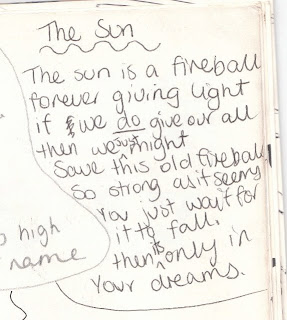 The Sun
The sun is a fireball
forever giving light
if we do give our all
then we just might
Save this old fireball
So strong as it seems
You just wait for
it to fall,
then is only in
Your dreams.
o high
name